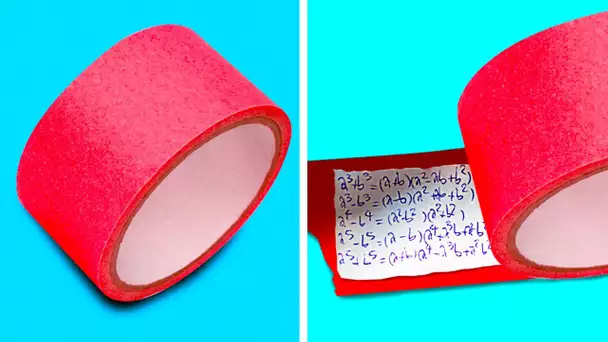 a³+b³=(a+b)(a²-ab+b²)
a³-b³=(a-b)(a²+ab+b²)
a⁴-b⁴=(a²-b²)(a²+b²)
a⁵-b⁵=(a-b)(a⁴+a³b+a²b²
a⁵+b⁵=(a+b)(a⁴-a³b+a²b